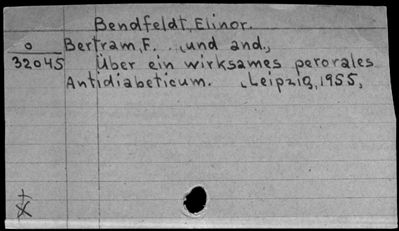 Bendfeldt, Elinor.
o Bertram, F. .. und and.,
32045 Über ein wirksames perorales
Antidiabeticum. Leipzig, 1955,